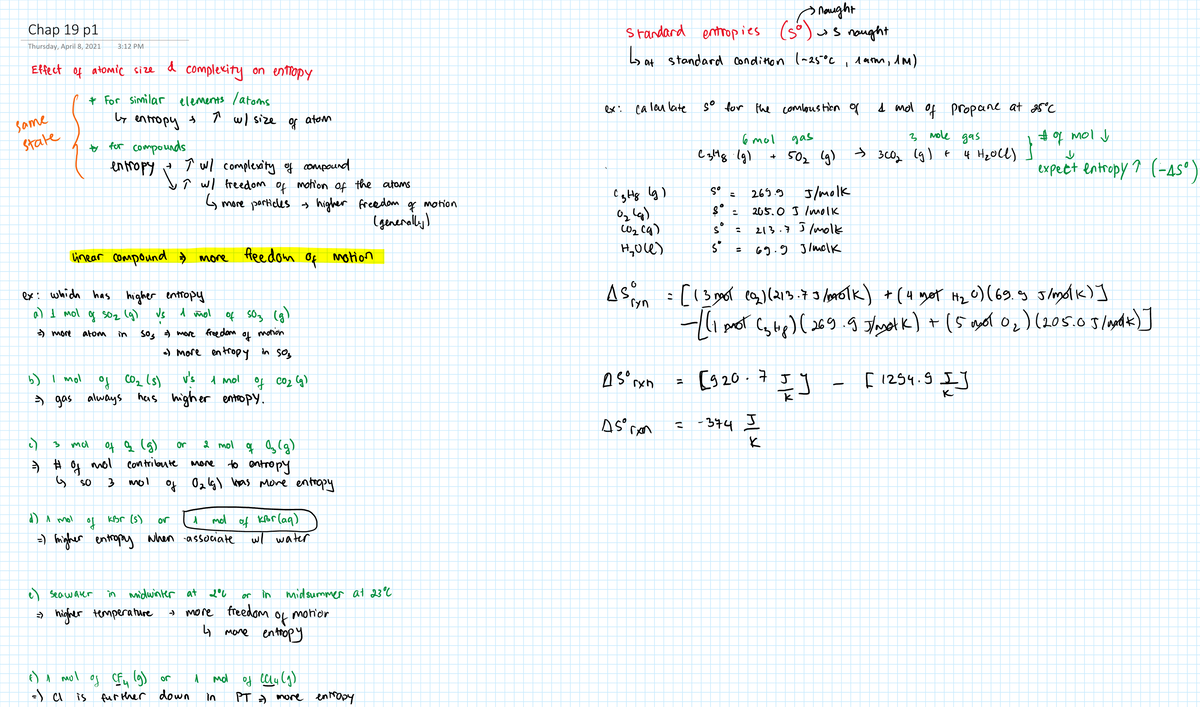 Chap 19 p1
Thursday, April 8, 2021 3:12 PM
Effect of atomic size & complexity on entropy
same state
* For similar elements /atoms
↳ entropy → ↑ w/ size of atom
* for compounds
entropy → ↑ w/ complexity of compound
↘ ↑ w/ freedom of motion of the atoms
↳ more particles → higher freedom of motion
(generally)
linear compound → more freedom of motion
ex: which has higher entropy
a) 1 mol of SO2 (g) vs 1 mol of SO3 (g)
⇒ more atom in SO3 ⇒ more freedom of motion
⇒ more entropy in SO3
b) 1 mol of CO2 (s) v's 1 mol of CO2 (g)
⇒ gas always has higher entropy.
c) 3 mol of O2 (g) or 2 mol of O3 (g)
⇒ # of mol contribute more to entropy
↳ so 3 mol of O2(g) has more entropy
d) 1 mol of KBr (s) or 1 mol of KBr (aq)
⇒ higher entropy when associate w/ water
e) seawater in midwinter at 2°C or in midsummer at 23°C
⇒ higher temperature → more freedom of motion
↳ more entropy
f) 1 mol of CF4 (g) or 1 mol of CCl4 (g)
⇒ Cl is further down in PT ⇒ more entropy
→ nought
standard entropies (S°) → S nought
↳ at standard condition (~25°C, 1atm, 1M)
ex: calculate S° for the combustion of 1 mol of propane at 25°C
6 mol gas 3 mole gas # of mol ↓
C3H8 (g) + 5O2 (g) → 3CO2 (g) + 4 H2O(l) ↓
expect entropy ? (-ΔS°)
C3H8 (g) S° = 269.9 J/molK
O2 (g) S° = 205.0 J/molK
CO2 (g) S° = 213.7 J/molK
H2O(l) S° = 69.9 J/molK
ΔS°rxn = [(3 mol CO2)(213.7 J/molK) + (4 mol H2O)(69.9 J/molK)]
-[(1 mol C3H8)(269.9 J/molK) + (5 mol O2)(205.0 J/molK)]
ΔS°rxn = [920.7 J/K] - [1294.9 J/K]
ΔS°rxn = -374 J/K